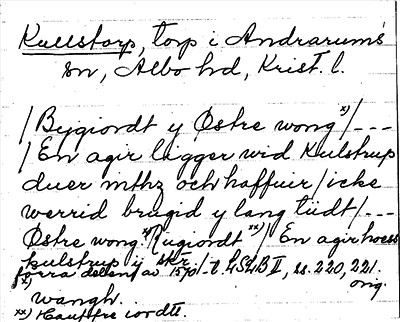 Kullstorp, torp i Andrarums
sn, Albo hd, Krist. l.
/Bygiordt y Østre wong x)/---
/En agir ligger wid Kulstrup
duer inthz och haffuer /icke
werrid brugid y lang tiidt/---
Østre wong x)/Rugiordt xx)/ En agir hoess
kulstrup y skr./
förra delen av 1570-t. LSLB II, ss. 220, 221.
orig.
x) wangh.
xx) Hauffre iordt.